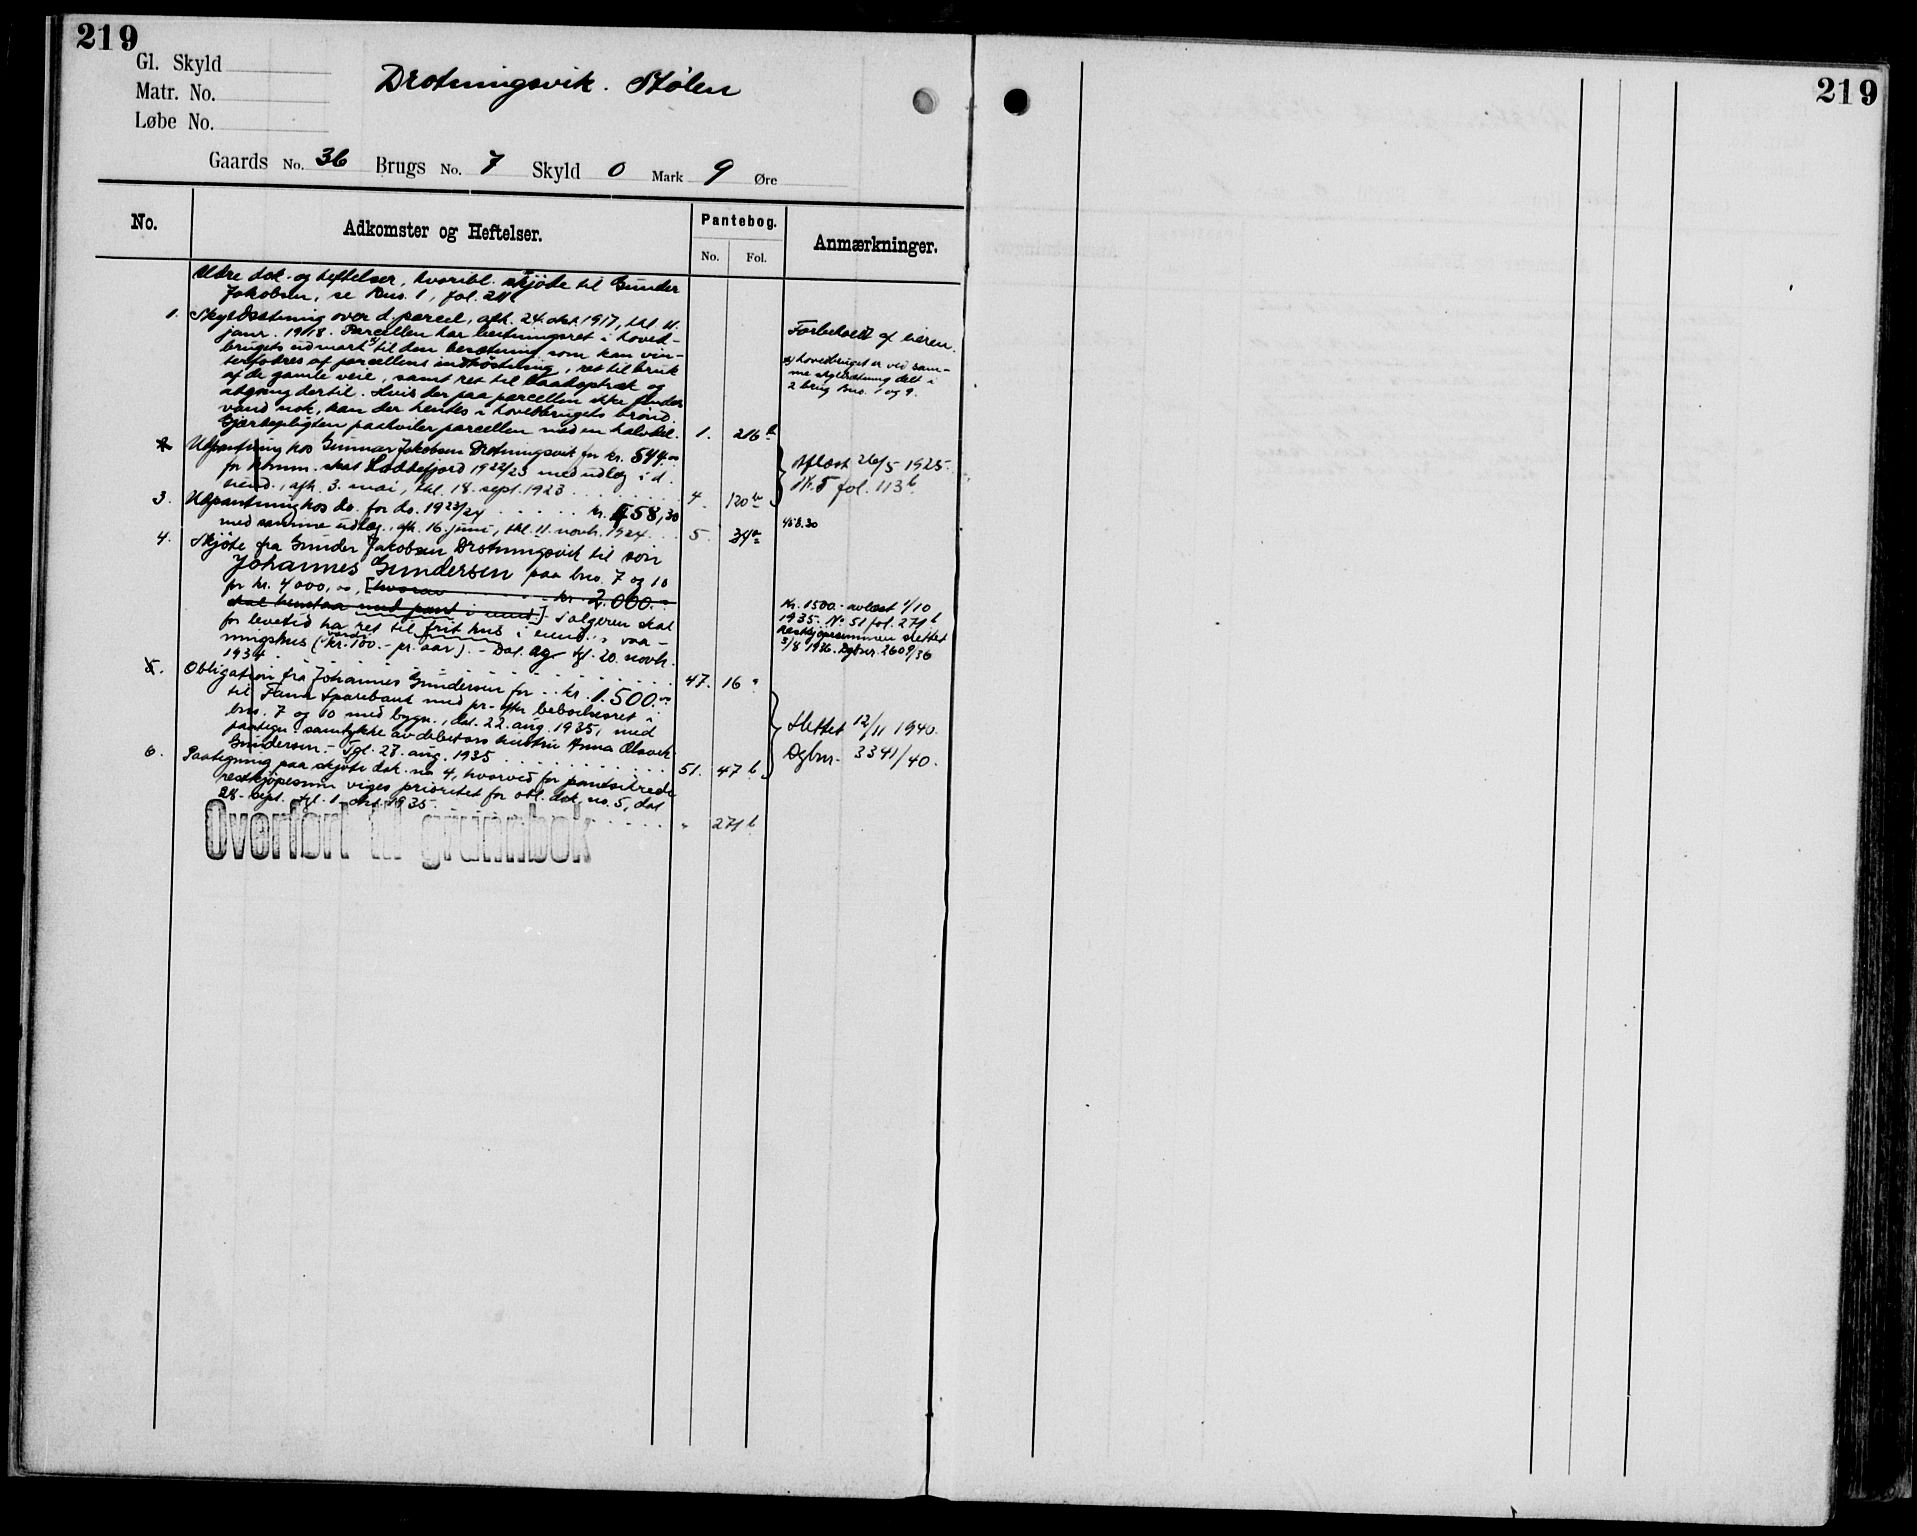 219
219
Gl. Skyld
Matr. No.
Løbe No.
Drotningsvik. Stølen
Gaards No. 36 Brugs No. 7 Skyld 0 Mark 9 Øre
No.
Adkomster og Heftelser.
Pantebog.
No. Fol.
Anmærkninger.
Ældre dok. og heftelser, hvoribl. skjøte til Gunder
Jakobsen, se Bno. 1, fol. 211
1. Skyldsetning over d. parcel, afh. 24. okt. 1917, thl. 11.
janr. 1918. Parcellen har beitningsret i hoved-
brugets udmark x) til den besætning som kan vin-
terfødres af parcellens indhøstning, ret til bruk
af de gamle veie, samt ret til baadoptræk og
adgang dertil. Hvis der paa parcellen ikke findes
vand nok, kan der hentes i hovedbrugets brønd.
Gjærdepligten paahviler parcellen med en halvdel. 1. 216 b
Forbeholdt af eieren.
x) hovedbruget er ved sam-
me skyldsetning delt i
2 brug bno. 1 og 9.
2. Udpantning hos Gunnar Jakobsen Drotningsvik for kr. 544,00
for komm. skat Loddefjord 1922/23 med udlæg i d.
eiend., afh. 3. mai, thl. 18. sept. 1923 4. 120 a
3. Udpantning hos do. for do. 1923/24 kr. 458,30
med samme udlæg, afh. 16. juni, thl. 11. novbr. 1924 5. 34 a
Aflæst 26/5 1925.
N. 5 fol. 113 b.
458.30
4. Skjøte fra Gunder Jakobsen Drotningsvik til søn
Johannes Gundersen paa bno. 7 og 10
for kr. 4000,00, [hvorav kr. 2.000.-
skal henstaa med pant i eiend.] Sælgeren skal
for levetid ha ret til frit hus i eiend.s vaa-
ningshus (værdi kr. 100.- pr. aar). - Dat. og tgl. 20. novbr.
1934 47. 16 a
Kr. 1500.- avlæst 1/10
1935. No 51 fol. 271 b
Restkjøpesummen slettet
3/8 1936. Dgbnr. 2609/36
5. Obligation fra Johannes Gundersen for kr. 1.500.00
til Fana Sparebank med pr. efter beboelsesret i
bno. 7 og 10 med bygn., dat. 22. aug. 1935, med
paategn. samtykke av debitors hustru Anna Olava
Gundersen. - Tgl. 27. aug. 1935 51. 47 b
Slettet 12/11 1940.
Dgbnr. 3341/40.
6. Paategning paa skjøte dok. no. 4, hvorved for pantsikrede
restkjøpesum viges prioritet for obl. dok. no. 5, dat.
28. sept. tgl. 1. okt. 1935. " 271 b
Overført til grunnbok